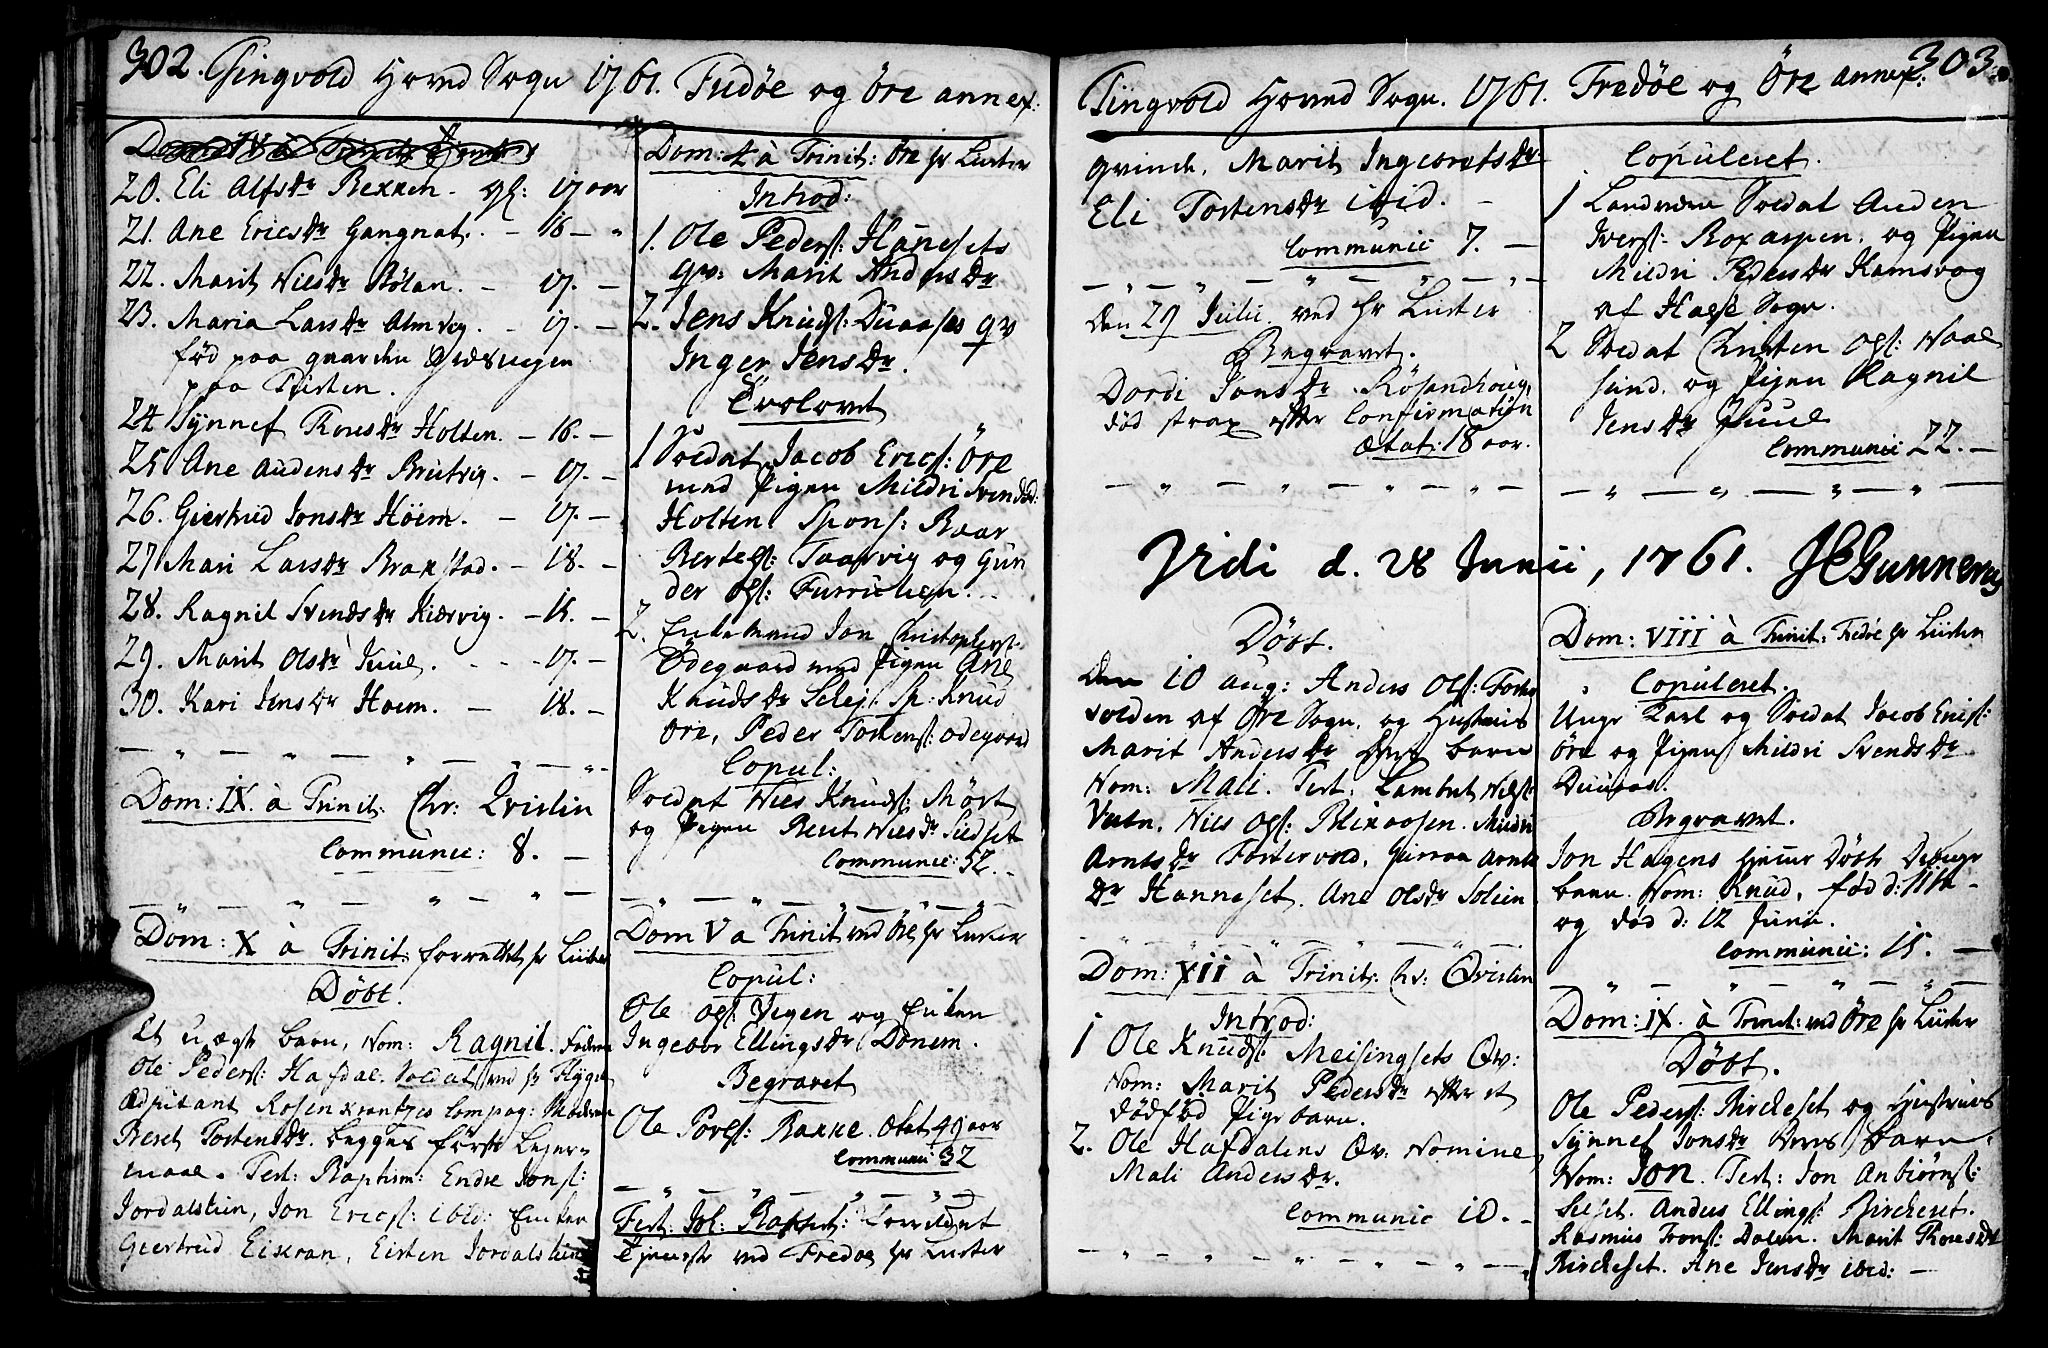 302. Tingvold Hoved Sogn 1761. Fredøe og Öre annex.
20. Eli Alfsdr Bexxen. gl: 17 aar
21. Ane Ericsdr Gangnat. - 16 - "
22. Marit Nielsdr Bölan. - 17. -
23. Maria Larsdr Almvig. - 17. -
fød paa gaarden
paa Tusten.
24 Synnef Toresdr Holten. - 16. -
25 Ane Audensdr Brutvig. - 17. -
26. Giertrud Jonsdr Höem. - 17. -
27 Mari Larsdr Braxstad. - 18. -
28. Ragnil Svendsdr Kiærvig. - 15. -
29. Marit Olsdr Juul. - - - 17. -
30. Kari Jensdr Hoem. - 18. -
Dom: IX. à Trinit: Chr: Qvislin
Communic: 8. -
Dom: X à Trinit: forrettet hr Lister
Döbt.
Et uægte barn, Nom: Ragnil. Faderen
Ole Peders: Hafdal. Soldat ved hr Flygel
Adjutant Rosenkrantzes Compag: Moderen
Beret Tostensdr. begges första Lejer-
maal. Test: Baptism: Endre Jons:
Jordalslien, Jon Erics: ibid: Enken
Giertrud Eixran, Eisten Jordalslien
Dom: 4 à Trinit: Öre hr Lister
Introd:
1. Ole Peders: Hanesets
qv: Marit Andersdr
2. Jens Knuds: Duaases qv
Inger Jensdr.
Trolovet
1 Soldat Jacob Erics: Öre
med Pigen Mildri Svendsd:
Holten Spons: Baar
Bertels: Taarvig og Gun
der Ols:
2. Enkemand Jon Christophers:
Ödegaard med Pigen Ane
Knudsdr Selej. Sp: Knud
Öre, Peder Tostens: Ödegaard
Copul:
Soldat Niels Knuds: Möst
og Pigen Beret Nielsdr Sudset
Communic: 52. -
Dom V a Trinit ved Öre hr Lister
Copul:
Ole Ols: Vegen og Enken
Ingebor Ellingsdr Donem.
Begravet
Ole Povels: Baxke. Ætat. 49 aar
Communic 32
Fest: Joh: Baptist: forrettet
Tjeneste ved Fredøe hr Lister
Tingvold Hoved Sogn. 1761. Fredøe og Öre annex. 303.
qvinde, Marit Ingebretsdr
Eli Tostensdr ibid. -
Communic 7. -
Den 29 Julii ved hr Lister
Begravet.
Dordi Jonsdr Rösandhoug,
död strax efter Confirmation
Ætat: 18 aar.
Copuleret.
1 Landværn Soldat Auden
Ivers: Boxaspen. og Pigen
Mildri Pedersdr Hamsvog
af Halse Sogn.
2 Soldat Christen Ols: Waal
sund. og Pigen Ragnil
Jensdr Juul
Communic 22. -
Vidi d. 28 Junii, 1761. JEGunnerus
Döbt.
Den 10 aug: Anders Ols: Foster
volden af Öre Sogn. og Hustrues
Marit Andersdr barn
Nom: Mali. Test: Lambert Niels:
Vatn. Niels Ols: Blixaasen. Mildri
Arntsdr Fostervold. Gurraa Arnts
dr Hanneset. Ane Olsdr Solien
Dom: XII à Trinit: Chr: Qvislin
Introd:
1 Ole Knuds: Meisingsets Qv:
Nom: Marit Pedersdr efter et
dödföd Pige barn.
2. Ole Hafdalens Qv: Nomine
Mali Andersdr.
Communic 10. -
Dom: VIII à Trinit: Fredøe hr Lister
Copuleret.
Unge Karl og Soldat Jacob Erics:
Öre og Pigen Mildri Svendsdr
Duuaas.
Begravet.
Jon Hagens hjeme döbte Drenge
barn. Nom: Knud, föd d: 11te
og död d: 12 Junii.
Communic: 15. -
Dom: IX. à Trinit: ved Öre hr Lister
Döbt.
Ole Peders: Bircheset og Hustrues
Synnef Jonsdr Barn.
Nom: Jon. Test: Jon Anbiörns:
Seset. Anders Ellings: Bircheset.
Rasmus Trons: Dalen. Marit Toresdr
Bircheset. Ane Jensdr ibid: -